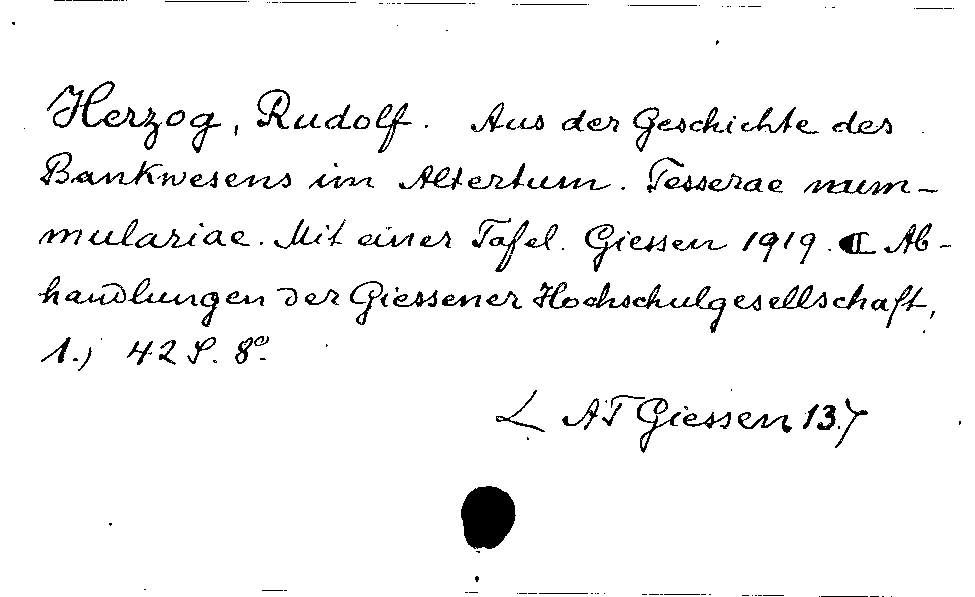 Herzog, Rudolf. Aus der Geschichte des
Bankwesens im Altertum. Tesserae num-
mulariae. Mit einer Tafel. Giessen 1919. (Ab-
handlungen der Giessener Hochschulgesellschaft,
1.) 42 S. 8°.
L AT Giessen 137